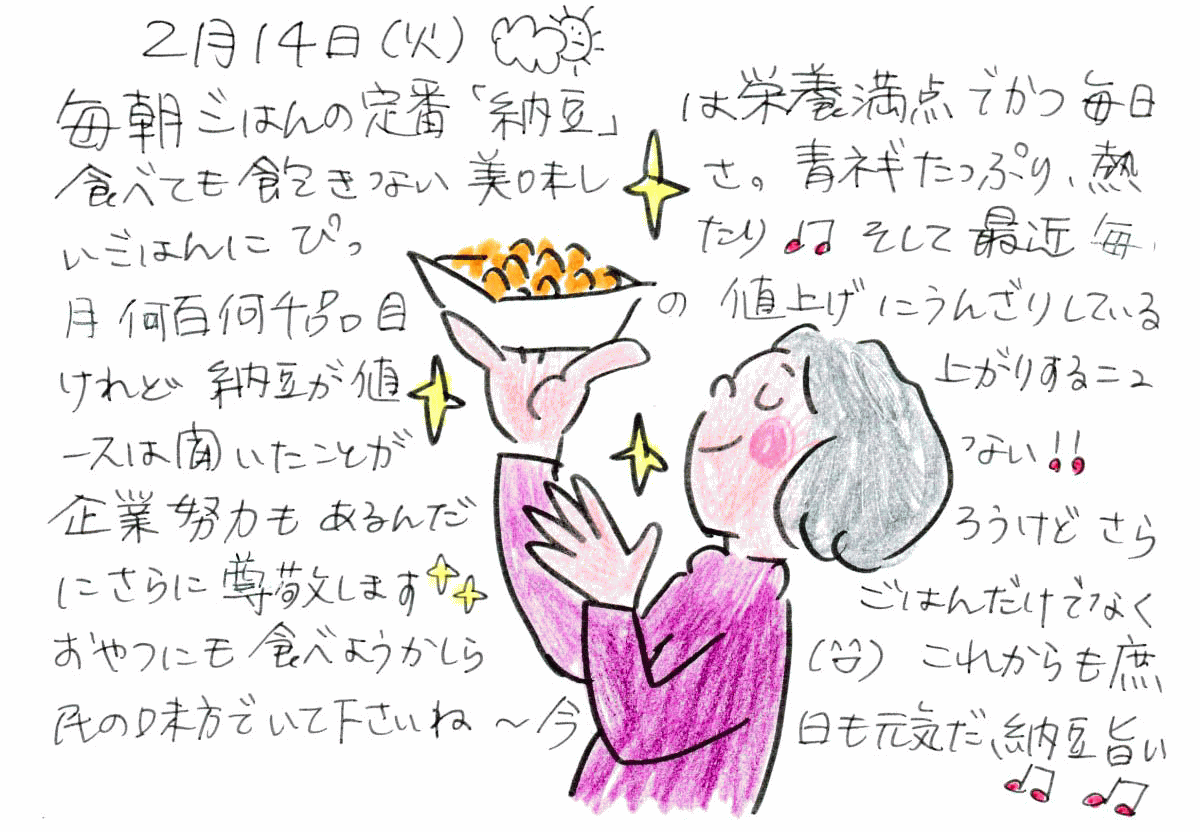 2月14日(火)
毎朝ごはんの定番「納豆」は栄養満点でかつ毎日
食べても飽きない美味しさ。青ネギたっぷり、熱
いごはんにぴったり♪♫そして最近毎
月何百何千品目の値上げにうんざりしている
けれど納豆が値上がりするニュ
ースは聞いたことがない!!
企業努力もあるんだろうけどさら
にさらに尊敬しますごはんだけでなく
おやつにも食べようかしら(^^)これからも庶
民の味方でいて下さいね〜今日も元気だ、納豆旨い
♫ ♫